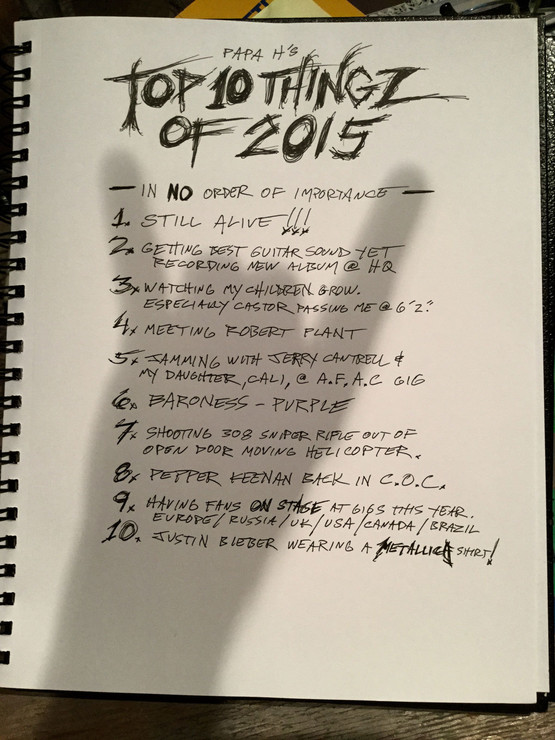 PAPA H'S
TOP 10 THINGZ
OF 2015
— IN NO ORDER OF IMPORTANCE —
1. STILL ALIVE!!!
2. GETTING BEST GUITAR SOUND YET
RECORDING NEW ALBUM @ HQ
3. WATCHING MY CHILDREN GROW.
ESPECIALLY CASTOR PASSING ME @ 6'2".
4. MEETING ROBERT PLANT
5. JAMMING WITH JERRY CANTRELL &
MY DAUGHTER, CALI, @ A.F.A.C GIG
6. BARONESS - PURPLE
7. SHOOTING 308 SNIPER RIFLE OUT OF
OPEN DOOR MOVING HELICOPTER.
8. PEPPER KEENAN BACK IN C.O.C.
9. HAVING FANS ON STAGE AT GIGS THIS YEAR.
EUROPE/RUSSIA/UK/USA/CANADA/BRAZIL
10. JUSTIN BIEBER WEARING A METALLICA SHIRT!